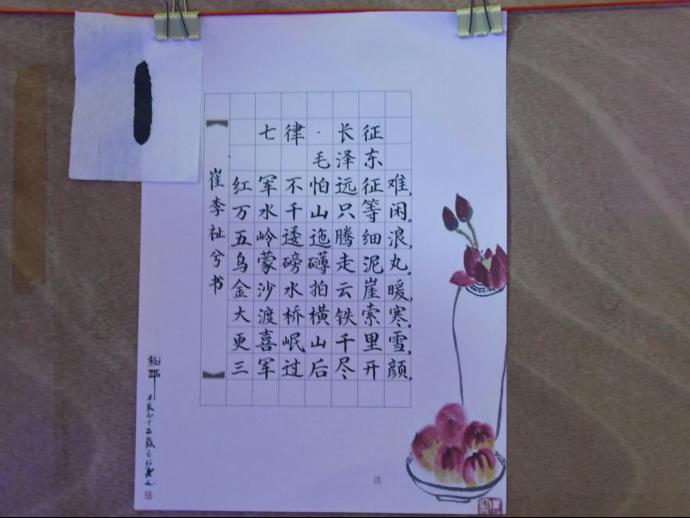 七律·长征
毛泽东
红军不怕远征难，
万水千山只等闲。
五岭逶迤腾细浪，
乌蒙磅礴走泥丸。
金沙水拍云崖暖，
大渡桥横铁索寒。
更喜岷山千里雪，
三军过后尽开颜。
崔李祉兮书